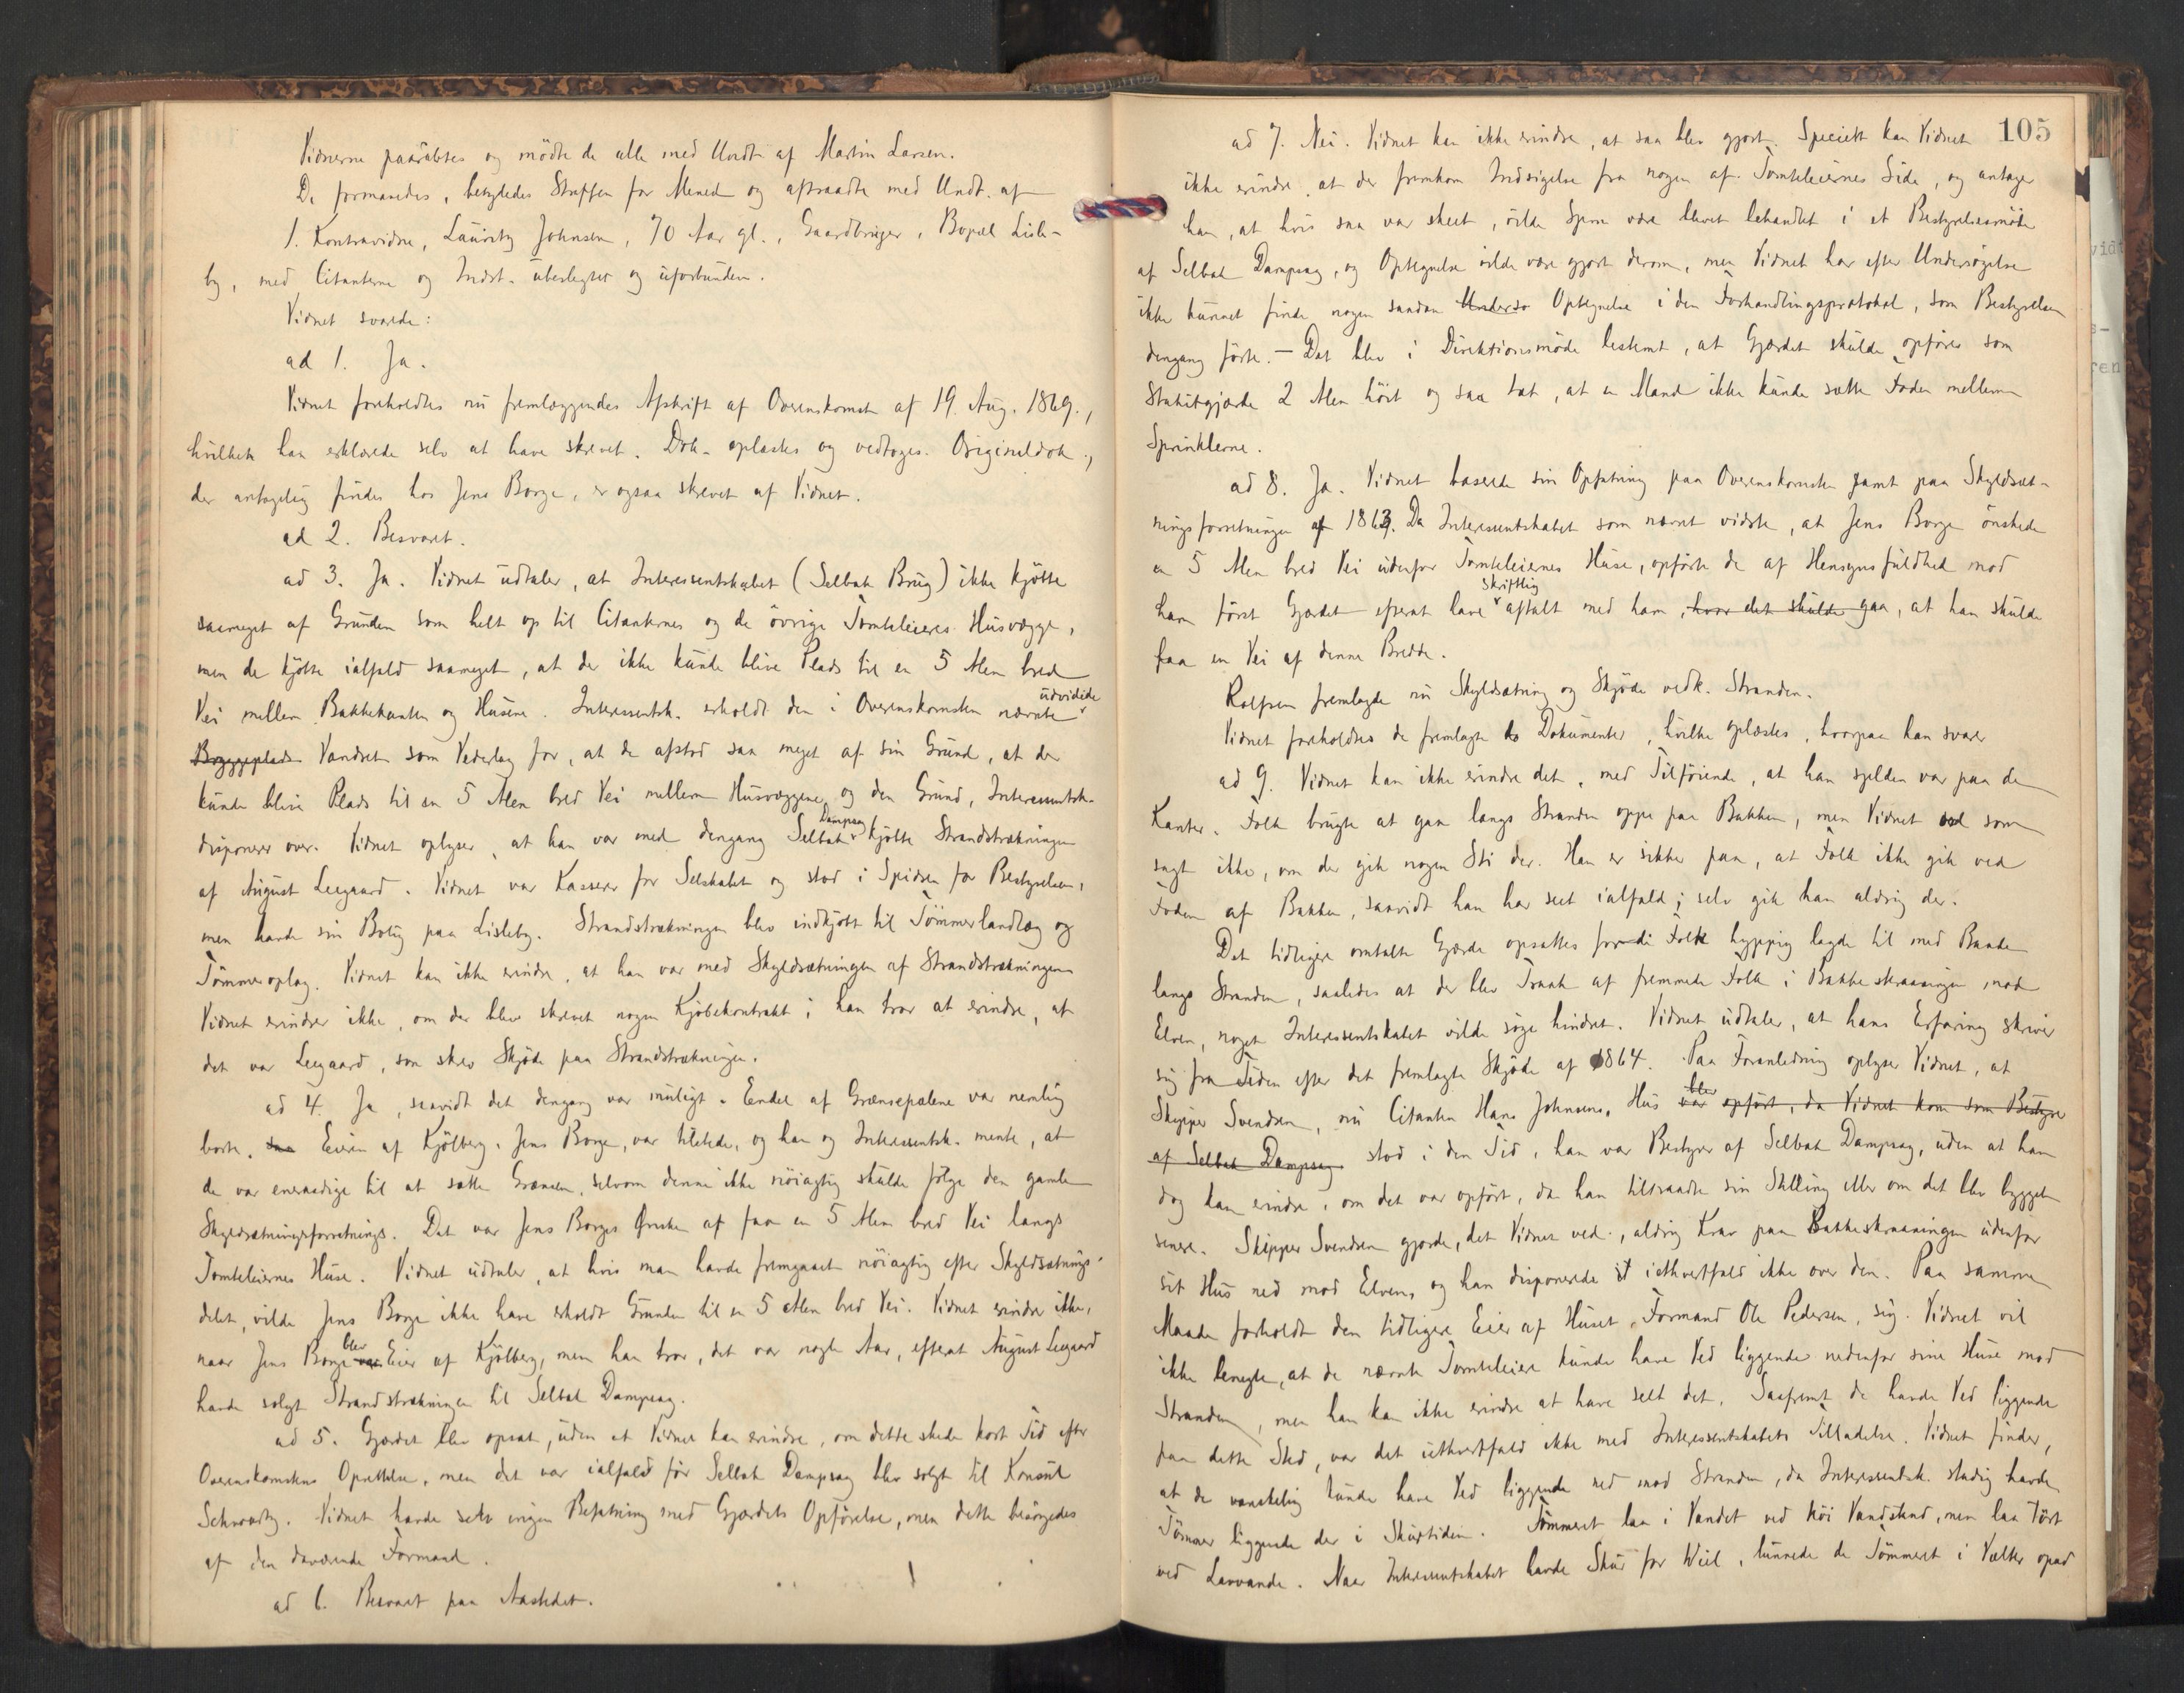 Vidnerne paaraabtes og mødte de alle med Undt. af Martin Larsen.
De formanedes, betydedes Straffen for Mened og aftraadte med Undt. af
1. Kontravidne, Lauritz Johnsen, 70 Aar gl., Gaardbruger, Bopæl Lisle-
by, med Citanterne og Indst. ubeslegtet og uforbunden.
Vidnet svarede:
ad 1. Ja.
Vidnet foreholdtes nu fremlæggendes Afskrift af Overenskomst af 19. Aug. 1869.,
hvilken han erklærede selv at have skrevet. Dok. oplæstes og vedtoges. Originaldok.,
der antagelig findes hos Jens Borge, er ogsaa skrevet af Vidnet.
ad 2. Besvaret.
ad 3. Ja. Vidnet udtaler, at Interessentskabet (Selbak Brug) ikke kjøbte
saameget af Grunden som helt op til Citanternes og de øvrige Tomteeieres Husvægge,
men de kjøbte ialfald saameget, at der ikke kunde blive Plads til en 5 Alen bred
Vei mellem Bakkekanten og Husene. Interessentsk. erholdt den i Overenskomsten nævnte udvidede
Bryggeplads Vandret som Vederlag for, at de afstod saa meget af sin Grund, at der
kunde blive Plads til en 5 Alen bred Vei mellem Husvæggene og den Grund, Interessentsk.
disponerer over. Vidnet oplyser, at han var med dengang Selbak Dampsag kjøbte Strandstrækningen
af August Leegaard. Vidnet var Kasserer for Selskabet og stod i Spidsen for Bestyrelsen,
men havde sin Bolig paa Lisleby. Strandstrækningen blev indkjøbt til Tømmerlandlæg og
Tømmeroplag. Vidnet kan ikke erindre, at han var med Skyldsætningen af Strandstrækningen
Vidnet erindrer ikke, om der blev skrevet nogen Kjøbekontrakt; han tror at erindre, at
det var Leegaard, som skrev Skjøde paa Strandstrækningen.
ad 4. Ja, saavidt det dengang var muligt. Endel af Grænsepælene var nemlig
borte. saa Eieren af Kjølberg, Jens Borge, var tilstede, og han og Interessentsk. mente, at
de var eneraadige til at sætte Grænsen, selvom denne ikke nøiagtig skulde følge den gamle
Skyldsætningsforretnings. Det var Jens Borges Ønske at faa en 5 Alen bred Vei langs
Tomteeiernes Huse. Vidnet udtaler, at hvis man havde fremgaaet nøiagtig efter Skyldsætnings-
delet, vilde Jens Borge ikke have erholdt Grunden til en 5 Alen bred Vei. Vidnet erindrer ikke,
naar Jens Borge var blev Eier af Kjølberg, men han tror, det var nogle Aar, efterat August Leegaard
havde solgt Strandstrækningen til Selbak Dampsag.
ad 5. Gjærdet blev opsat, uden at Vidnet kan erindre, om dette skede kort Tid efter
Overenskomstens Oprettelse, men det var ialfald før Selbak Dampsag blev solgt til Konsul
Schwartz. Vidnet havde selv ingen Befatning med Gjærdets Opførelse, men dette besørgedes
af den daværende Formand.
ad 6. Besvaret paa Aastedet.
105
ad 7. Nei. Vidnet kan ikke erindre, at saa blev gjort. Specielt kan Vidnet
ikke erindre, at der fremkom Indsigelse fra nogen af Tomteeiernes Side, og antager
han, at hvis saa var skeet, vilde Spm. være blevet behandlet i et Bestyrelsesmøde
af Selbak Dampsag, og Optegnelse vilde være gjort derom, men Vidnet har efter Undersøgelse
ikke kunnet finde nogen saadan Underso Optegnelse i den Forhandlingsprotokol, som Bestyrelsen
dengang førte. — Det blev i Direktionsmøde bestemt, at Gjærdet skulde opføres som
Stakitgjærde 2 Alen høit og saa tæt, at en Mand ikke kunde sætte Foden mellem
Sprinklerne.
ad 8. Ja. Vidnet baserede sin Opfatning paa Overenskomsten samt paa Skyldsæt-
ningsforretningen af 1863. Da Interessentskabet som nævnt vidste, at Jens Borge ønskede
en 5 Alen bred Vei udenfor Tomteeiernes Huse, opførte de af Hensynsfuldhed mod
ham først Gjærdet efterat have skriftlig aftalt med ham, hvor det skulde gaa, at han skulde
faa en Vei af denne Bredde.
Rolfsen fremlagde nu Skyldsætning og Skjøde vedk. Stranden.
Vidnet foreholdtes de fremlagte to Dokumenter, hvilke oplæstes, hvorpaa han svarer
ad 9. Vidnet kan ikke erindre det, med Tilføiende, at han sjelden var paa de
Kanter. Folk brugte at gaa langs Stranden oppe paa Bakken, men Vidnet ved som
sagt ikke, om der gik nogen Sti der. Han er sikker paa, at Folk ikke gik ved
Foden af Bakken, saavidt han har seet ialfald; selv gik han aldrig der.
Det tidligere omtalte Gjærde opsattes fordi Folk hyppig lagde til med Baade
langs Stranden, saaledes at der blev Traak af fremmede Folk i Bakkeskraaningen mod
Elven, noget Interessentskabet vilde søge hindret. Vidnet udtaler, at hans Erfaring skriver
sig fra Tiden efter det fremlagte Skjøde af 1864. Paa Foranledning oplyser Vidnet, at
Skipper Svendsen, nu Citanten Hans Johnsens, Hus var blev opført, da Vidnet kom som Bestyrer
af Selbak Dampsag stod i den Tid, han var Bestyrer af Selbak Dampsag, uden at han
dog kan erindre, om det var opført, da han tiltraadte sin Stilling eller om det blev bygget
senere. Skipper Svendsen gjorde, det Vidnet ved, aldrig Krav paa Bakkeskraaningen udenfor
sit Hus ned mod Elven, og han disponerede iethvertfald ikke over den. Paa samme
Maade forholdt den tidligere Eier af Huset, Formand Ole Pedersen, sig. Vidnet vil
ikke benegte, at de nævnte Tomteeiere kunde have Ved liggende nedenfor sine Huse mod
Stranden, men han kan ikke erindre at have seet det. Saafremt de havde Ved liggende
paa dette Sted, var det iethvertfald ikke med Interessentskabets Tilladelse. Vidnet finder,
at de vanskelig kunde have Ved liggende ned mod Stranden, da Interessentsk. stadig havde
Tømmer liggende der i Skurtiden. Tømmeret laa i Vandet ved høi Vandstand, men laa tørt
ved Lavvande. Naar Interessentskabet havde Skur for Wiel, lunnede de Tømmeret i Vælter opad